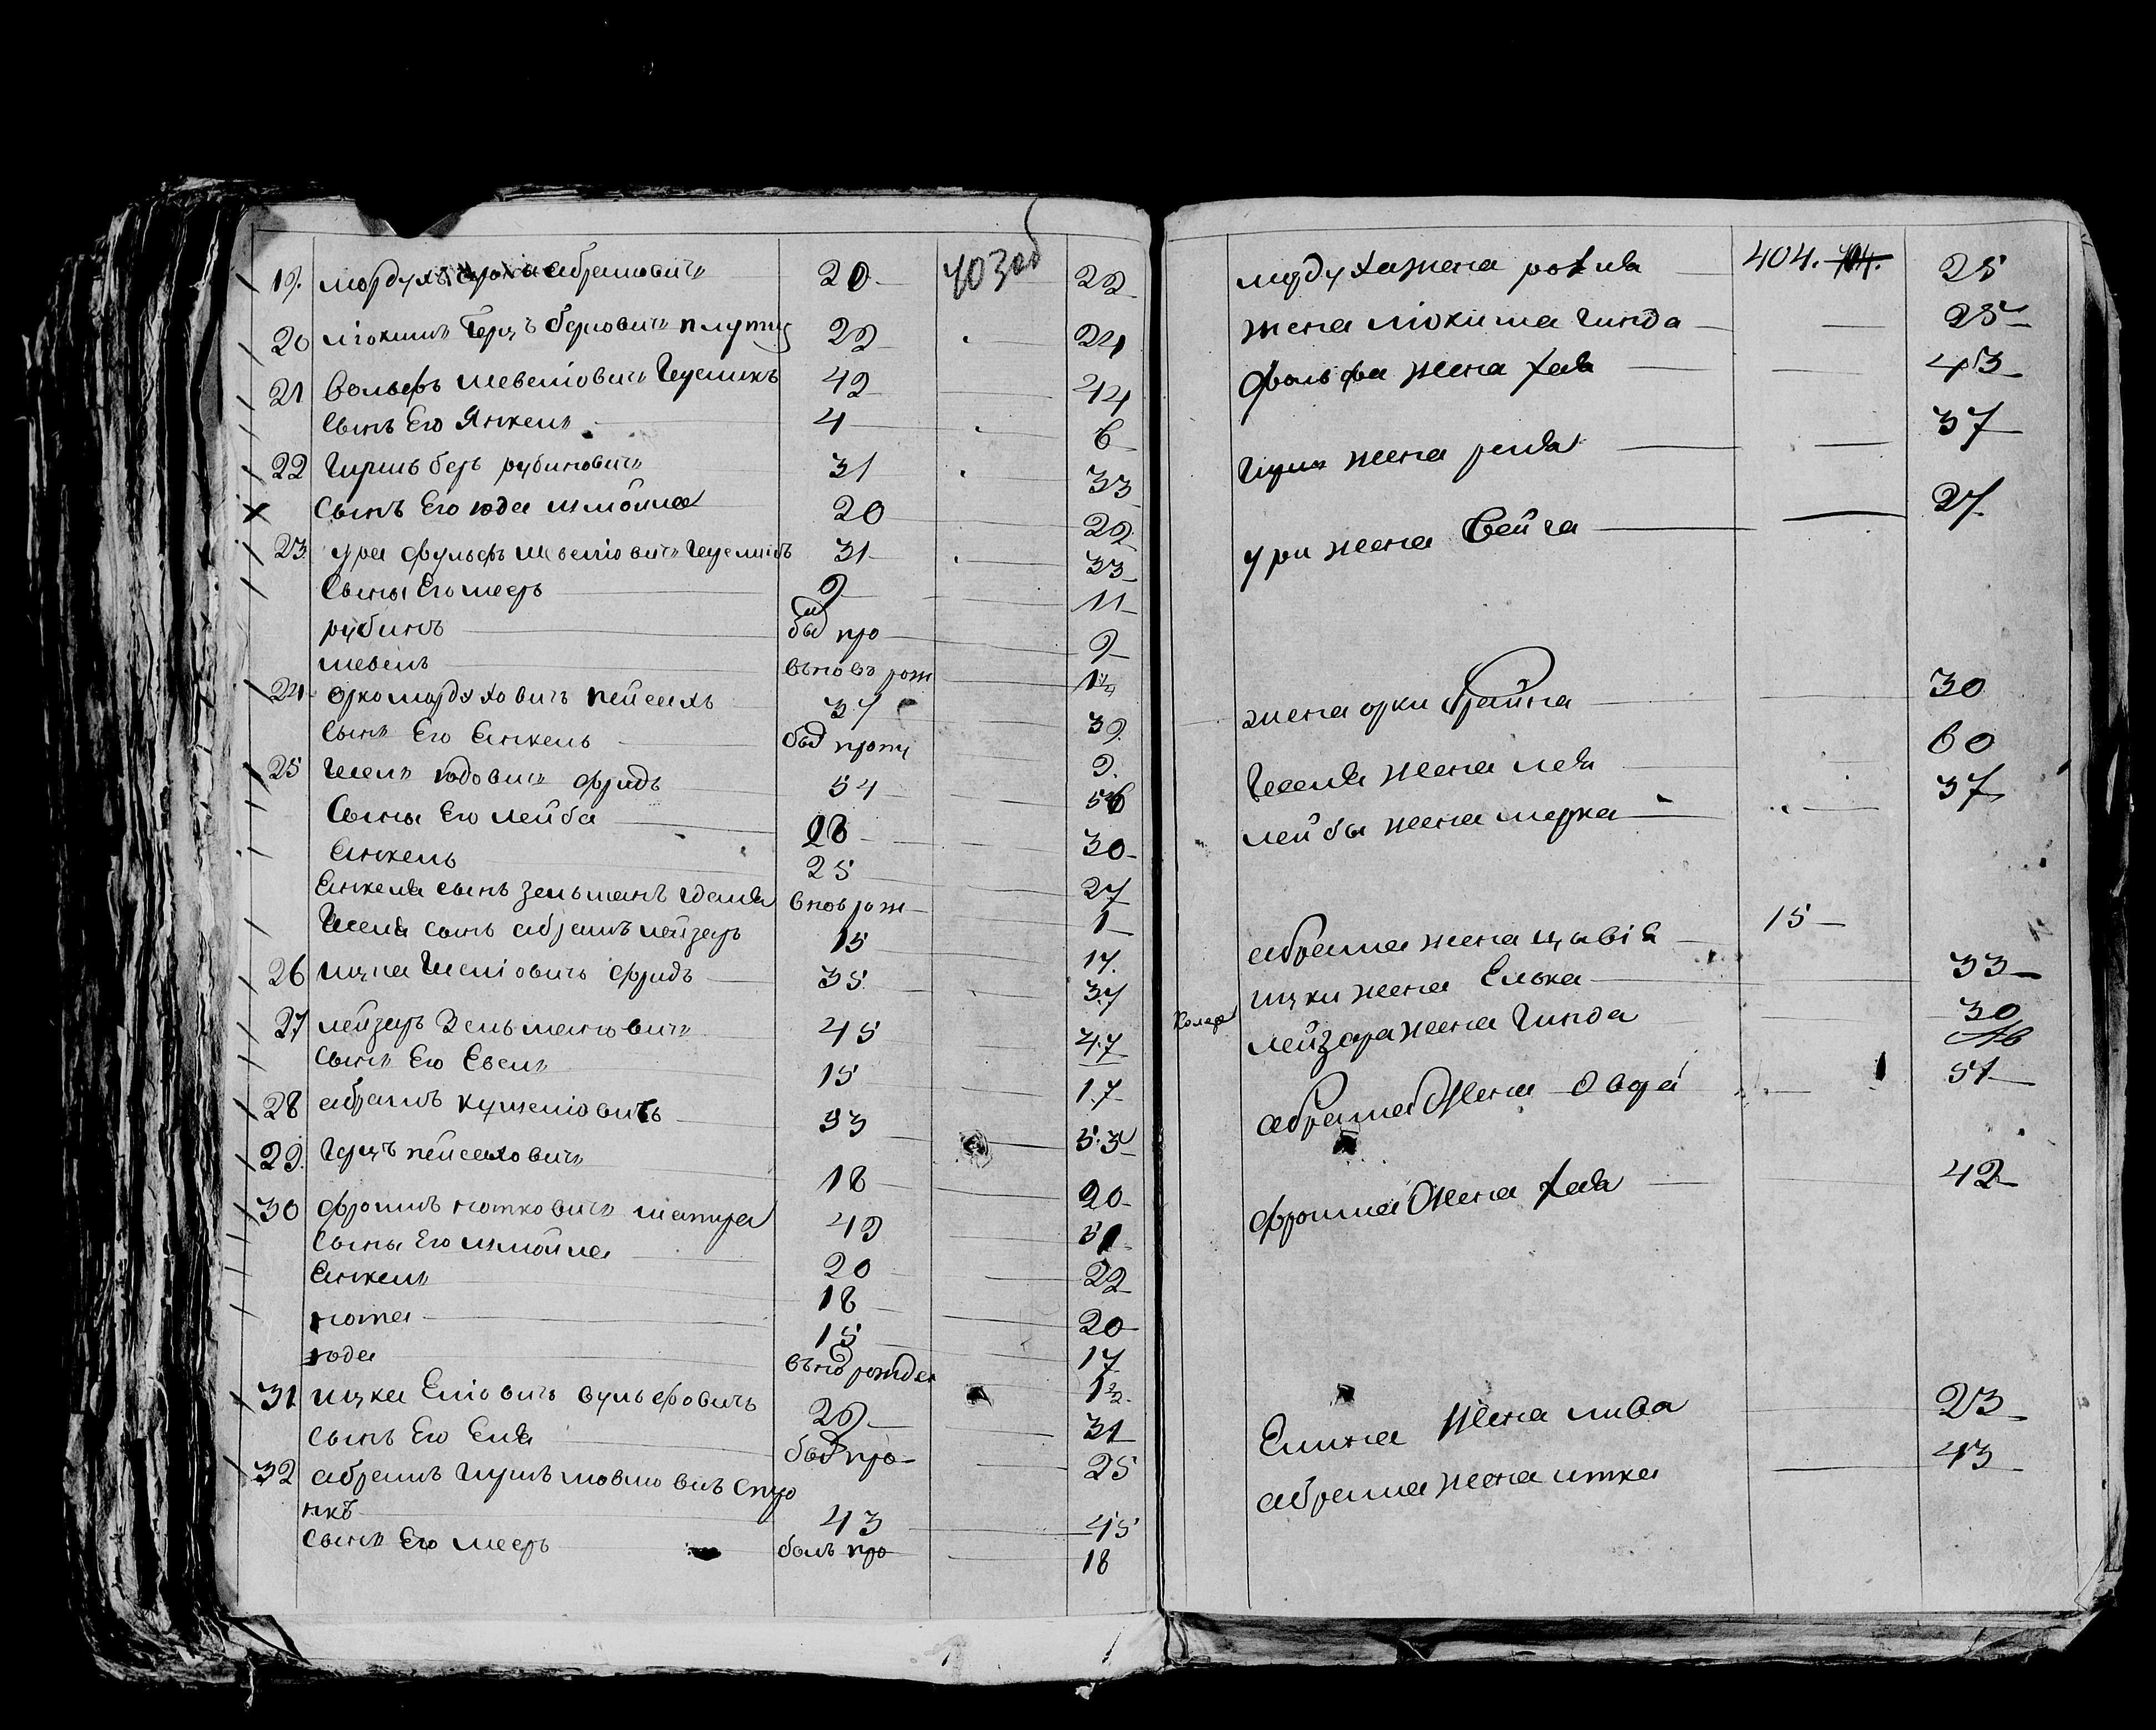 19. мордухъ абрамовичъ 20 403 об 22
20 Герцъ берковичъ 22 24
21 Вольфъ шевелiовичъ 42 44
Сынъ Его Янкель 4 6
22 Гиршъ беръ рубиновичъ 31 33
Сынъ Его юда шмойла 20 22
23. ура фульфъ шевелiовичъ 31 33
Сыны Его мееръ 9 11
рубинъ был про 9
шевель вьновъ рож 1½
24 орко мордуховичъ пейсахъ 37 39
Сынъ Его Енкель был проп 9.
25 юдовичъ фридъ 54 56
Сыны Его лейба 28 30
Енкель 25 27
Енкеля сынъ зельманъ вновь рож 1
сынъ абрамъ лейзеръ 15 17.
26 ицка фридъ 35 37
27 лейзеръ Зельмановичъ 45 47
Сынъ Его Евель 15 17
28 абрамъ 53
29. Герцъ пейсаховичъ 18 20
30 фроимъ нотковичъ шапира 49 51
Сыны Его шмойла 20 22
Енкель 18 20
нота 15 17
юда вьно рожден 1½
31 ицка Елiовичъ вульфовичъ 29 31
Сынъ Его Еля был про 25
32 абрамъ Гиршъ
нкъ 43 45
Сынъ Его мееръ былъ про 18
мордуха жена рохля 404. 25
жена Гинда 25
фольфа жена хая 43
жена рейзя 37
ури жена фейга 27
жена орки брайна 30
жена лея 60
лейбы жена мерка 37
абрама жена цывiя 15
ицки жена Елька 33
лейзера жена Гинда 30
абрама жена двора 51
фроима жена хая 42
жена лива 23
абрама жена итка 43